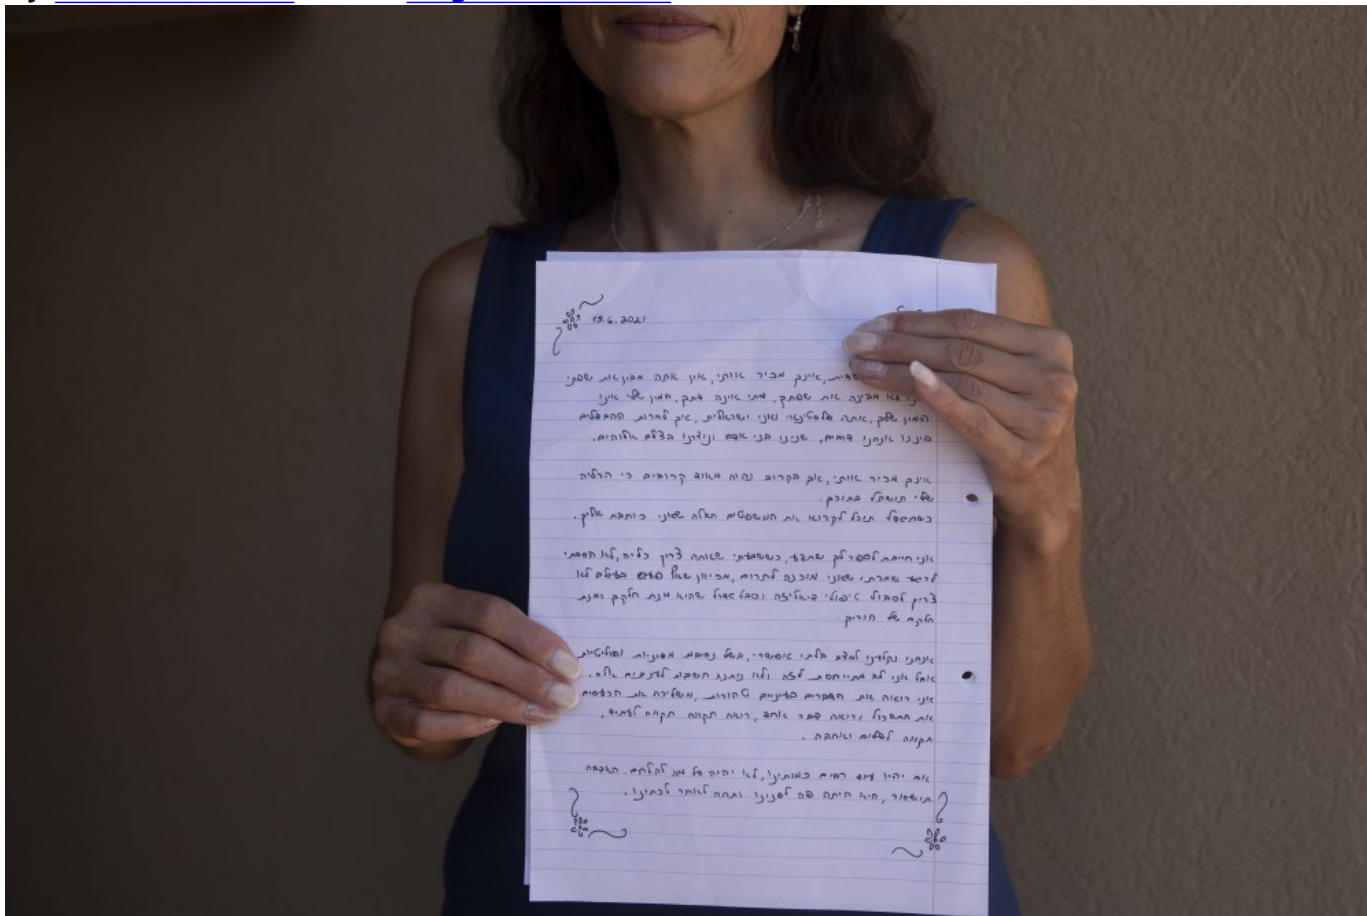 15.6.2021
אינך מכיר אותי, אין אתה מבין את שפתי
לא מבינה את שפתך. דתי אינה דתך, המין שלי אינו
המין שלך, אתה פלסטינאי ואני ישראלית, אך למרות ההבדלים
ביננו אנחנו דומים, שנינו בני אדם ונוצרנו בצלם אלוהים.
אינך מכיר אותי, אך בקרוב נהיה מאוד קרובים כי הכליה
שלי תושתל בתוכך.
כשתגדל תוכל לקרוא את המשפטים האלה שאני כותבת אליך.
אני חייבת לספר לך שברגע, כששמעתי שאתה צריך כליה, לא הססתי
לרגע ואמרתי שאני מוכנה לתרום, מכיוון שאף פעם בעולם לא
צריך לסבול טיפולי דיאליזה וסבל גדול שהיא מנת חלקך ומנת
חלקם של הוריך.
אנחנו נקלענו למצב בלתי אפשרי, בשל נסיבות ופוליטיות
אבל אני לא מתייחסת לזה ולא נותנת חשיבות לעניינים אלה.
אני רואה את הדברים בעיניים טהורות, משליכה את הכעסים,
את התסכול ורואה דבר אחד, רואה תקווה תקווה לעתיד,
תקווה לשלום ואהבה.
אם יהיו עוד רבים כמותינו, לא יהיה על מה להלחם. האדמה
תישאר, היא היתה פה לפנינו ותהיה לאחר לכתינו.